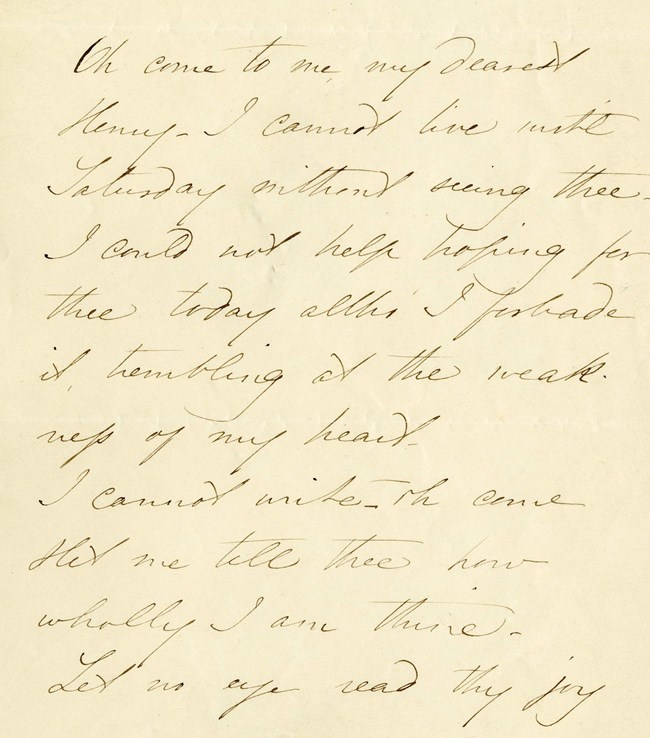 Oh come to me my dearest
Henry - I cannot live until
Saturday without seeing thee -
I could not help hoping for
thee today altho' I forbade
it, trembling at the weak-
ness of my heart -
I cannot write - oh come
& let me tell thee how
wholly I am thine -
Let no eye read thy joy